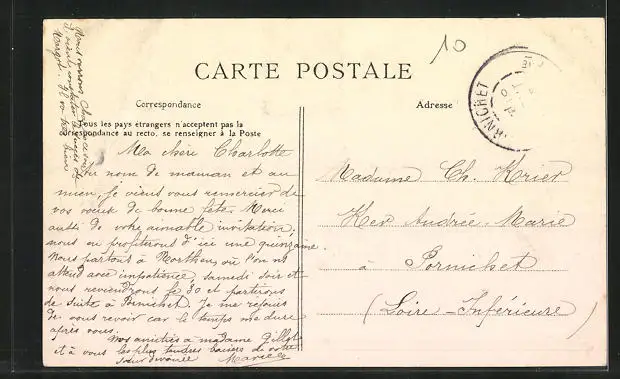 10
CARTE POSTALE
Correspondance
Adresse
Tous les pays étrangers n'acceptent pas la
correspondance au recto, se renseigner à la Poste
Ma chère Charlotte
Au nom de maman et au
mien, je viens vous remercier de
vos vœux de bonne fête. Merci
aussi de votre aimable invitation,
nous en profiterons d'ici une quinzaine.
Nous partons à où l'on ns
attend avec impatience, samedi soir et
nous reviendrons le 30 et partirons
de suite à Pornichet. Je me réjouis
de vous revoir car le temps me dure
après vous.
Nos amitiés à madame Gillot
et à vous les plus tendres baisers de votre
sœur dévouée Marcelle
Madame Ch. Krier
Ker Andrée-Marie
à Pornichet
(Loire-Inférieure)
RNICHET
Nous